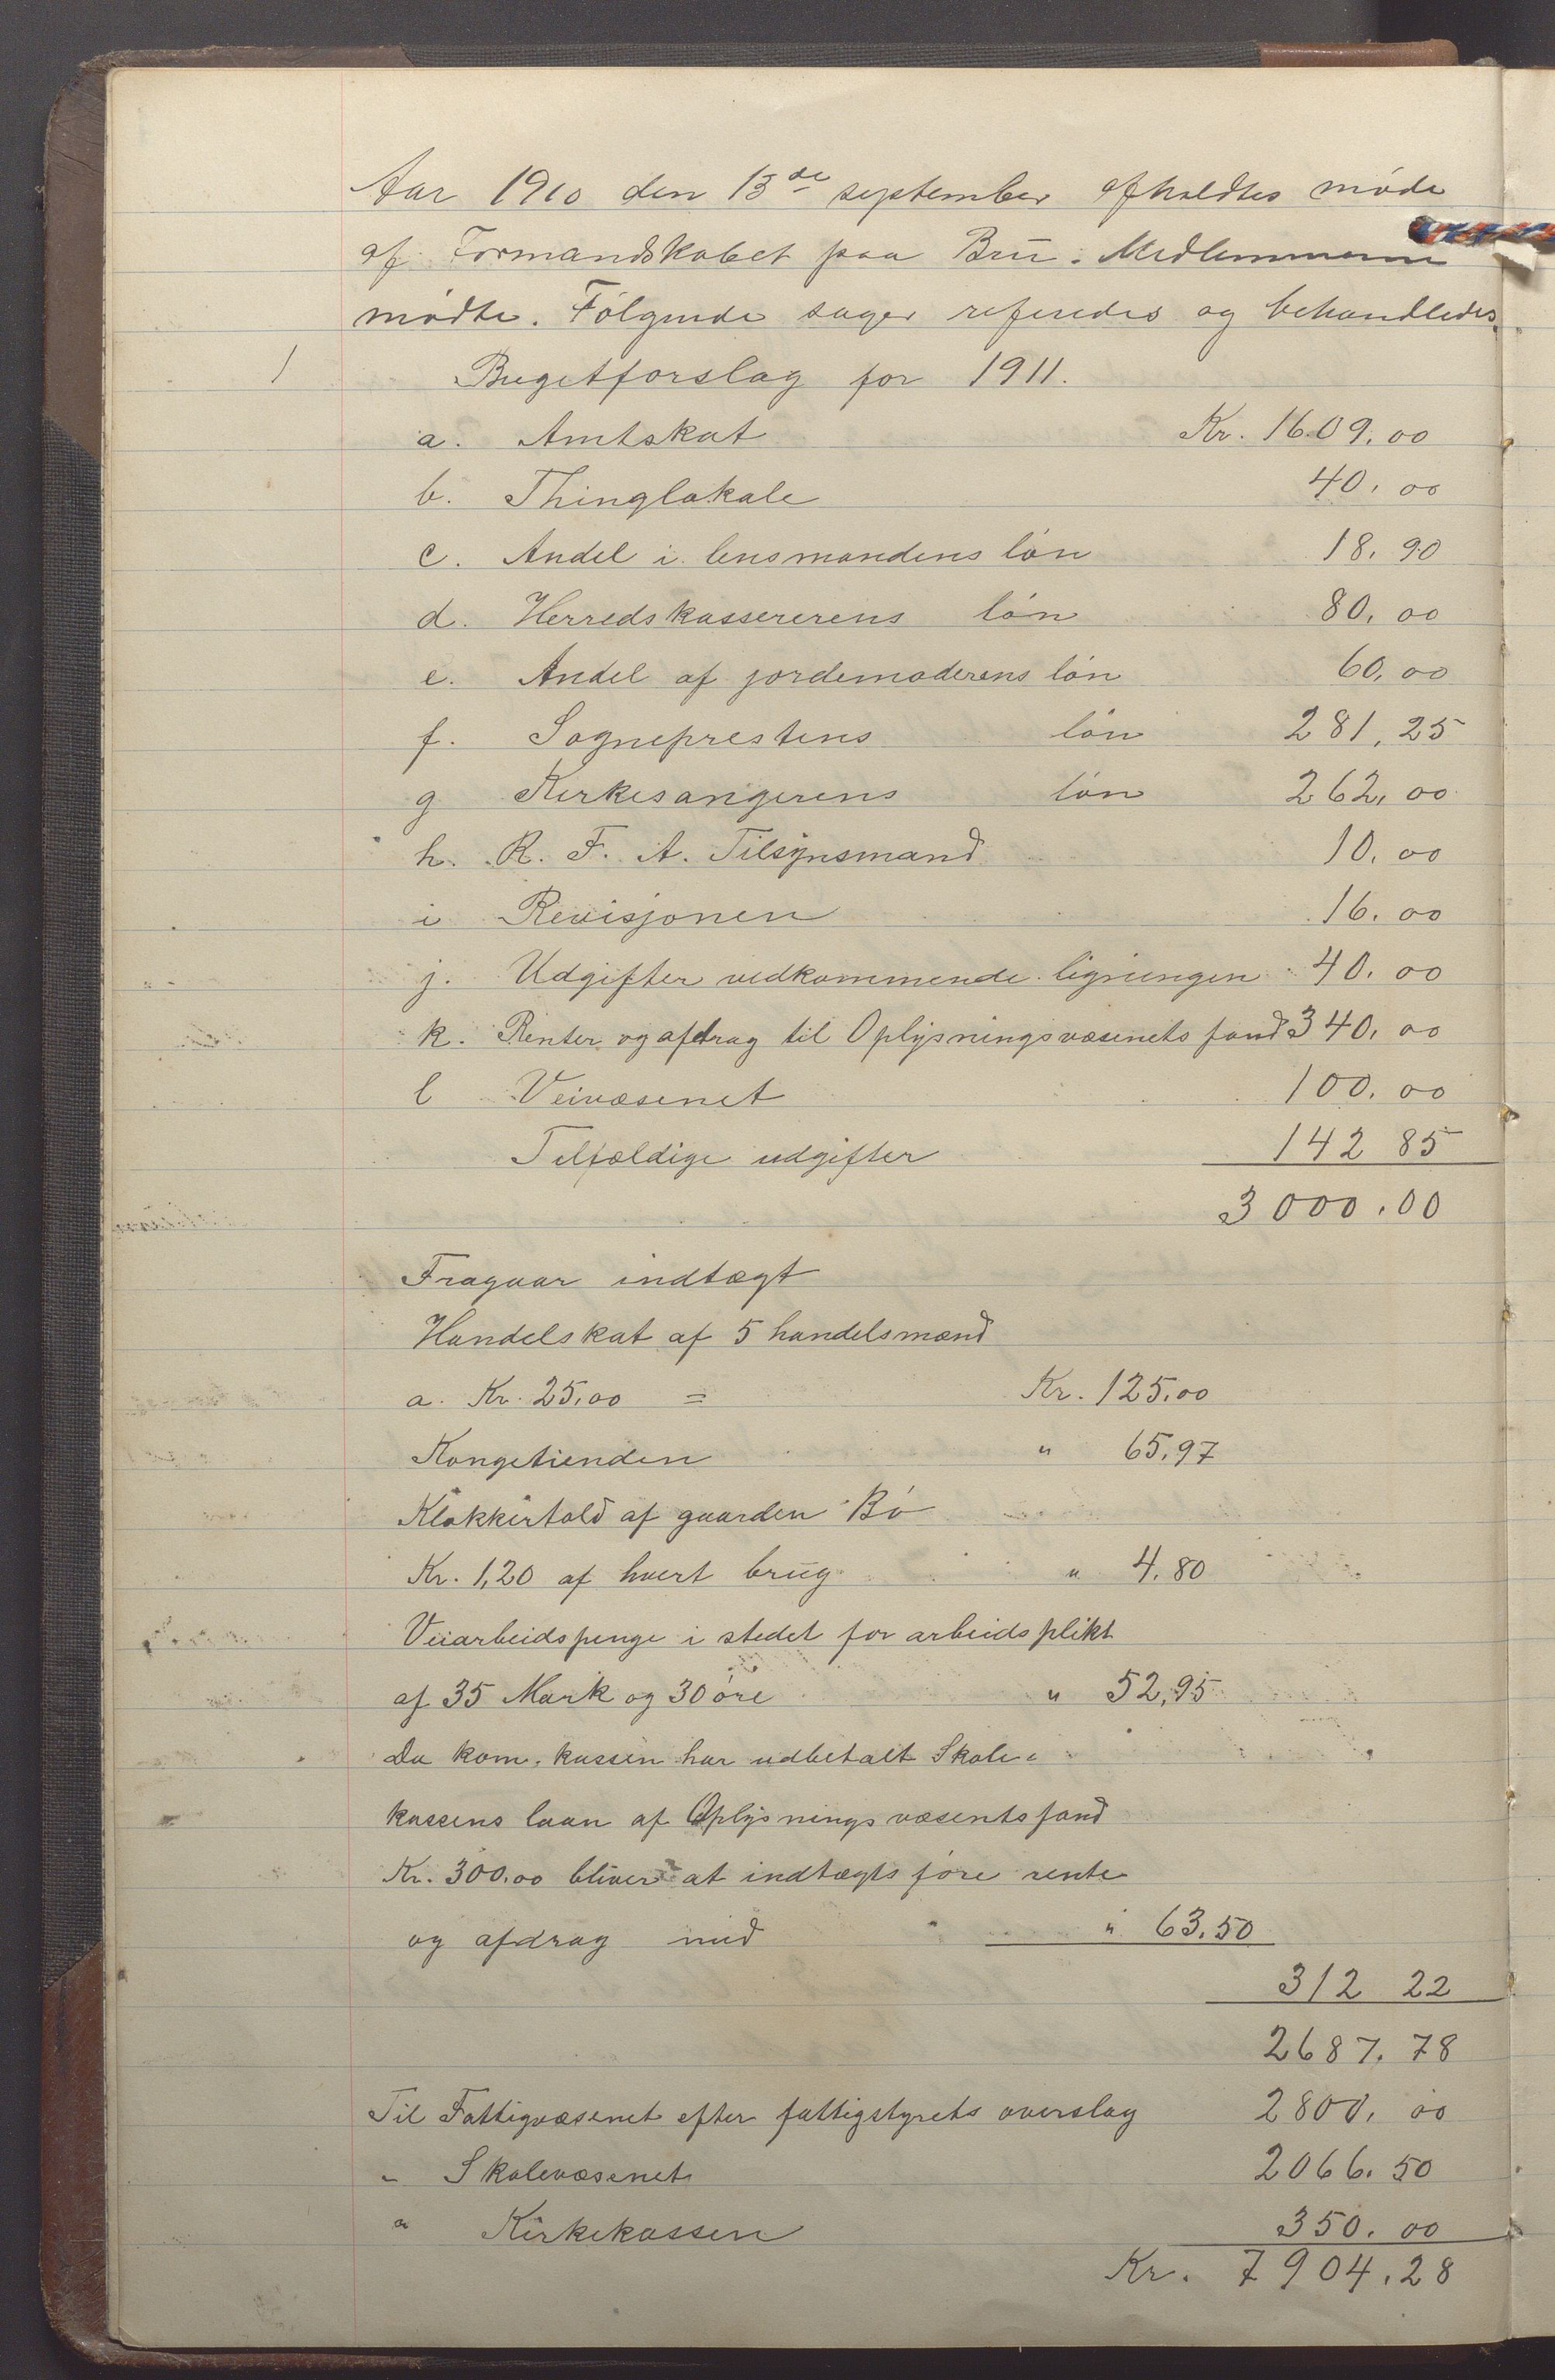 Aar 1910 den 13de september afholdtes møde
af Formandskabet paa Bru. Medlemmerne
mødte. Følgende sager referedes og behandledes.
1 Bugetforslag for 1911.
a. Amtskat Kr. 1609,00
b. Thinglokale 40,00
c. Andel i lensmandens løn 18,90
d. Herredskassererens løn 80,00
e. Andel af jordemoderens løn 60,00
f. Sogneprestens løn 281,25
g Kirkesangerens løn 262,00
h. R. F. A. Tilsynsmand 10,00
i Revisjonen 16,00
j. Udgifter vedkommende ligningen 40,00
k. Renter og afdrag til Oplysningsvæsenets fond 340,00
l Veivæsenet 100,00
Tilfældige udgifter 142 85
3000.00
Fragaar indtægt
Handelskat af 5 handelsmænd
a. Kr. 25,00 = Kr. 125,00
Kongetienden " 65,97
Klokkertold af gaarden Bø
Kr. 1,20 af hvert brug " 4,80
Veiarbeidspenge i stedet for arbeidsplikt
af 35 Mark og 30 øre " 52,95
Da kom. kassen har udbetalt Skole-
kassens laan af Oplysningsvæsents fond
Kr. 300,00 bliver at indtægtsføre rente
og afdrag med " 63,50
312 22
2687,78
Til Fattigvæsenet efter fattigstyrets overslag 2800,00
" Skolevæsenet 2066,50
" Kirkekassen 350,00
Kr. 7904,28